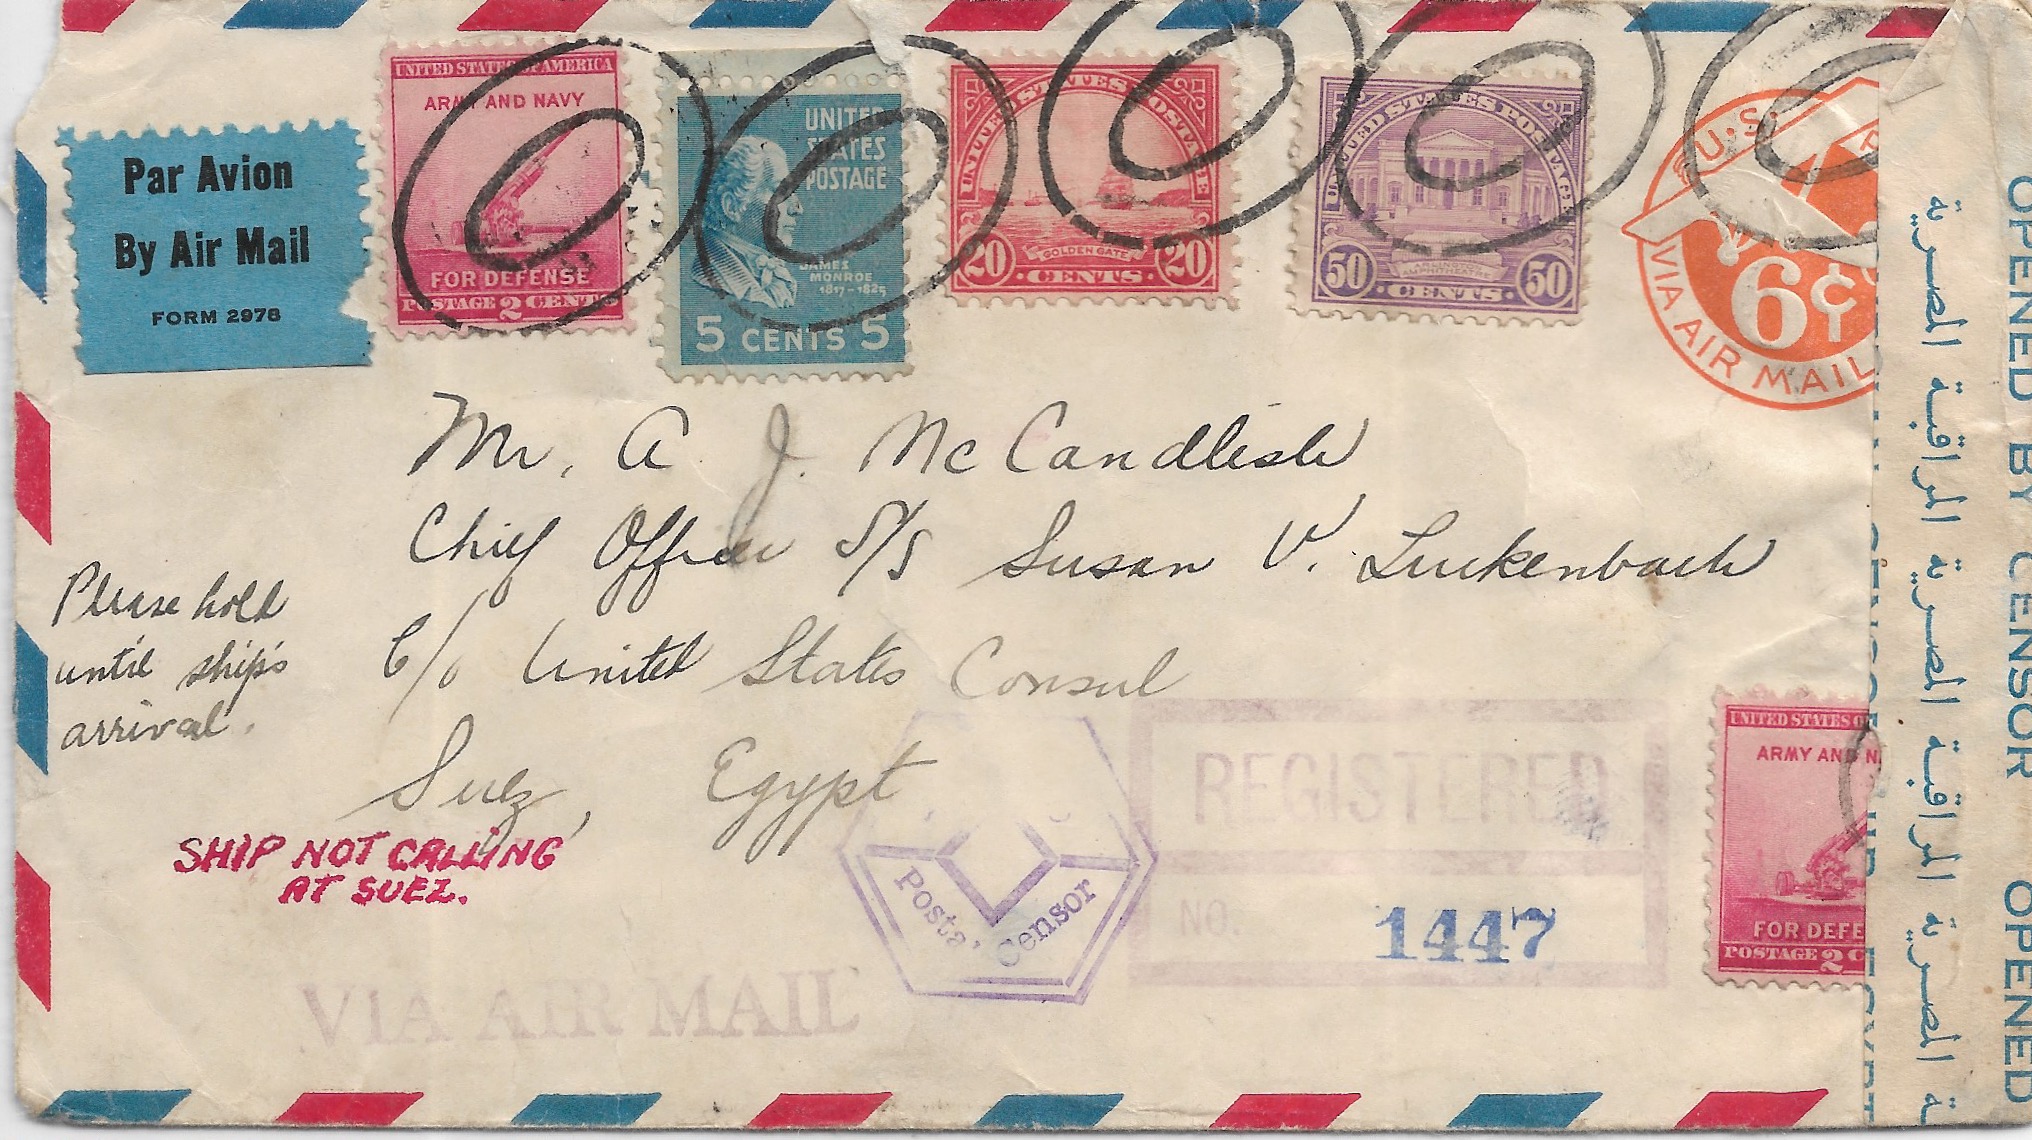 Par Avion
By Air Mail
FORM 2978
UNITED STATES OF AMERICA
ARMY AND NAVY
FOR DEFENSE
POSTAGE 2 CENTS
UNITED
STATES
POSTAGE
JAMES
MONROE
1817-1825
5 CENTS 5
UNITED STATES POSTAGE
GOLDEN GATE
20 · CENTS · 20
UNITED STATES POSTAGE
AMPHITHEATRE
50 · CENTS · 50
U.S.
6¢
VIA AIR MAIL
Mr. A. J. McCandlish
Chief Officer S/S Susan V. Luckenbach
C/o United States Consul
Suez, Egypt
Please hold
until ship's
arrival.
SHIP NOT CALLING
AT SUEZ.
VIA AIR MAIL
Postal Censor
REGISTERED
NO. 1447
UNITED STATES O
ARMY AND N
FOR DEFE
POSTAGE 2 C
المراقبة المصرية المراقبة المصرية المراقبة المصرية
OPENED BY CENSOR OPENED